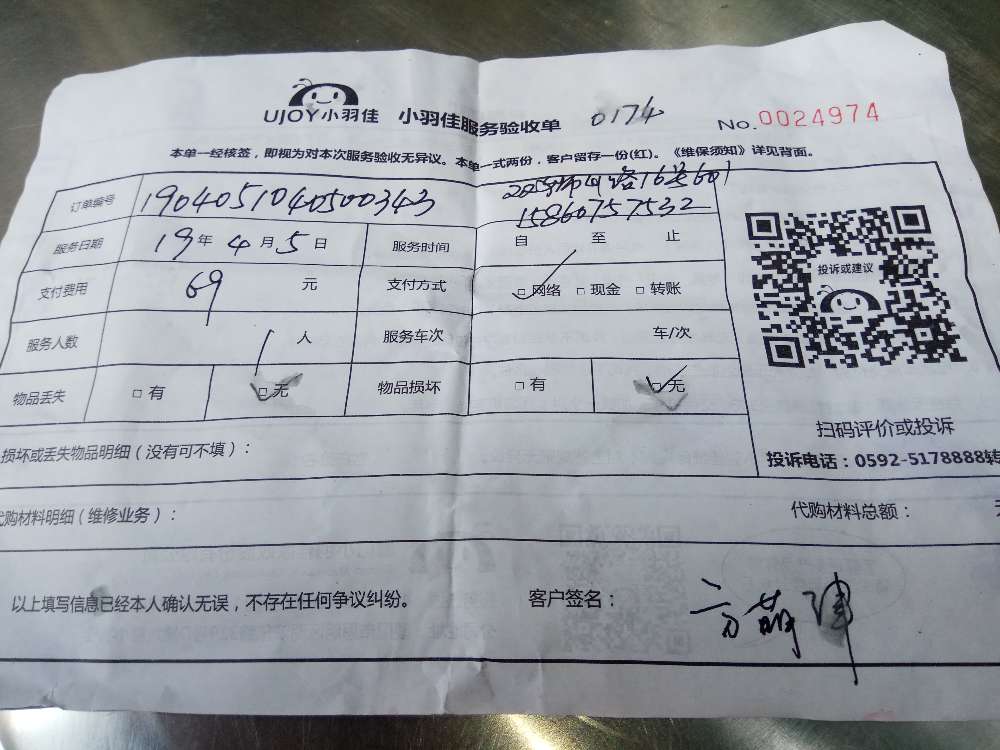 UJOY小羽佳 小羽佳服务验收单 0174 No.0024974
本单一经核签，即视为对本次服务验收无异议。本单一式两份，客户留存一份(红)。《维保须知》详见背面。
订单编号 1904051040500343 路16号601
15860757532
服务日期 19年4月5日 服务时间 自 至 止
支付费用 69 元 支付方式 □网络 □现金 □转账
服务人数 1人 服务车次 车/次
物品丢失 □有 □无 物品损坏 □有 □无
投诉或建议
扫码评价或投诉
投诉电话：0592-5178888转
损坏或丢失物品明细（没有可不填）：
代购材料明细（维修业务）： 代购材料总额：
以上填写信息已经本人确认无误，不存在任何争议纠纷。 客户签名：